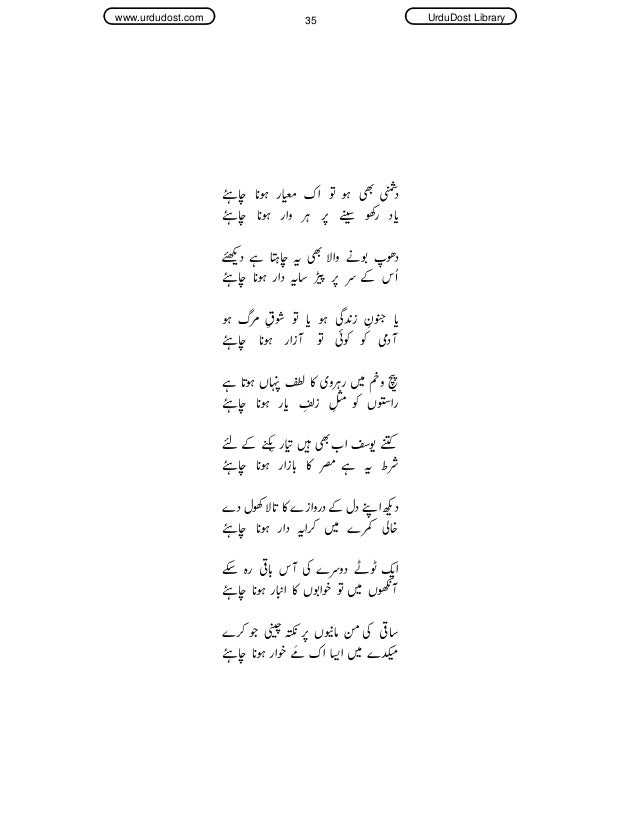 www.urdudost.com
35
UrduDost Library
دشمنی بھی ہو تو اک معیار ہونا چاہئے
یاد رکھو سینے پر ہر وار ہونا چاہئے
دھوپ بونے والا بھی یہ چاہتا ہے دیکھئے
اُس کے سر پر پیڑ سایہ دار ہونا چاہئے
یا جنونِ زندگی ہو یا تو شوقِ مرگ ہو
آدمی کو کوئی تو آزار ہونا چاہئے
پیچ وخم میں رہروی کا لطف پنہاں ہوتا ہے
راستوں کو مثلِ زلفِ یار ہونا چاہئے
کتنے یوسف اب بھی ہیں تیار بِکنے کے لئے
شرط یہ ہے مصر کا بازار ہونا چاہئے
دیکھ اپنے دل کے دروازے کا تالا کھول دے
خالی کمرے میں کرایہ دار ہونا چاہئے
ایک ٹوٹے دوسرے کی آس باقی رہ سکے
آنکھوں میں تو خوابوں کا انبار ہونا چاہئے
ساقی کی من مانیوں پر نکتہ چینی جو کرے
میکدے میں ایسا اک مَے خوار ہونا چاہئے